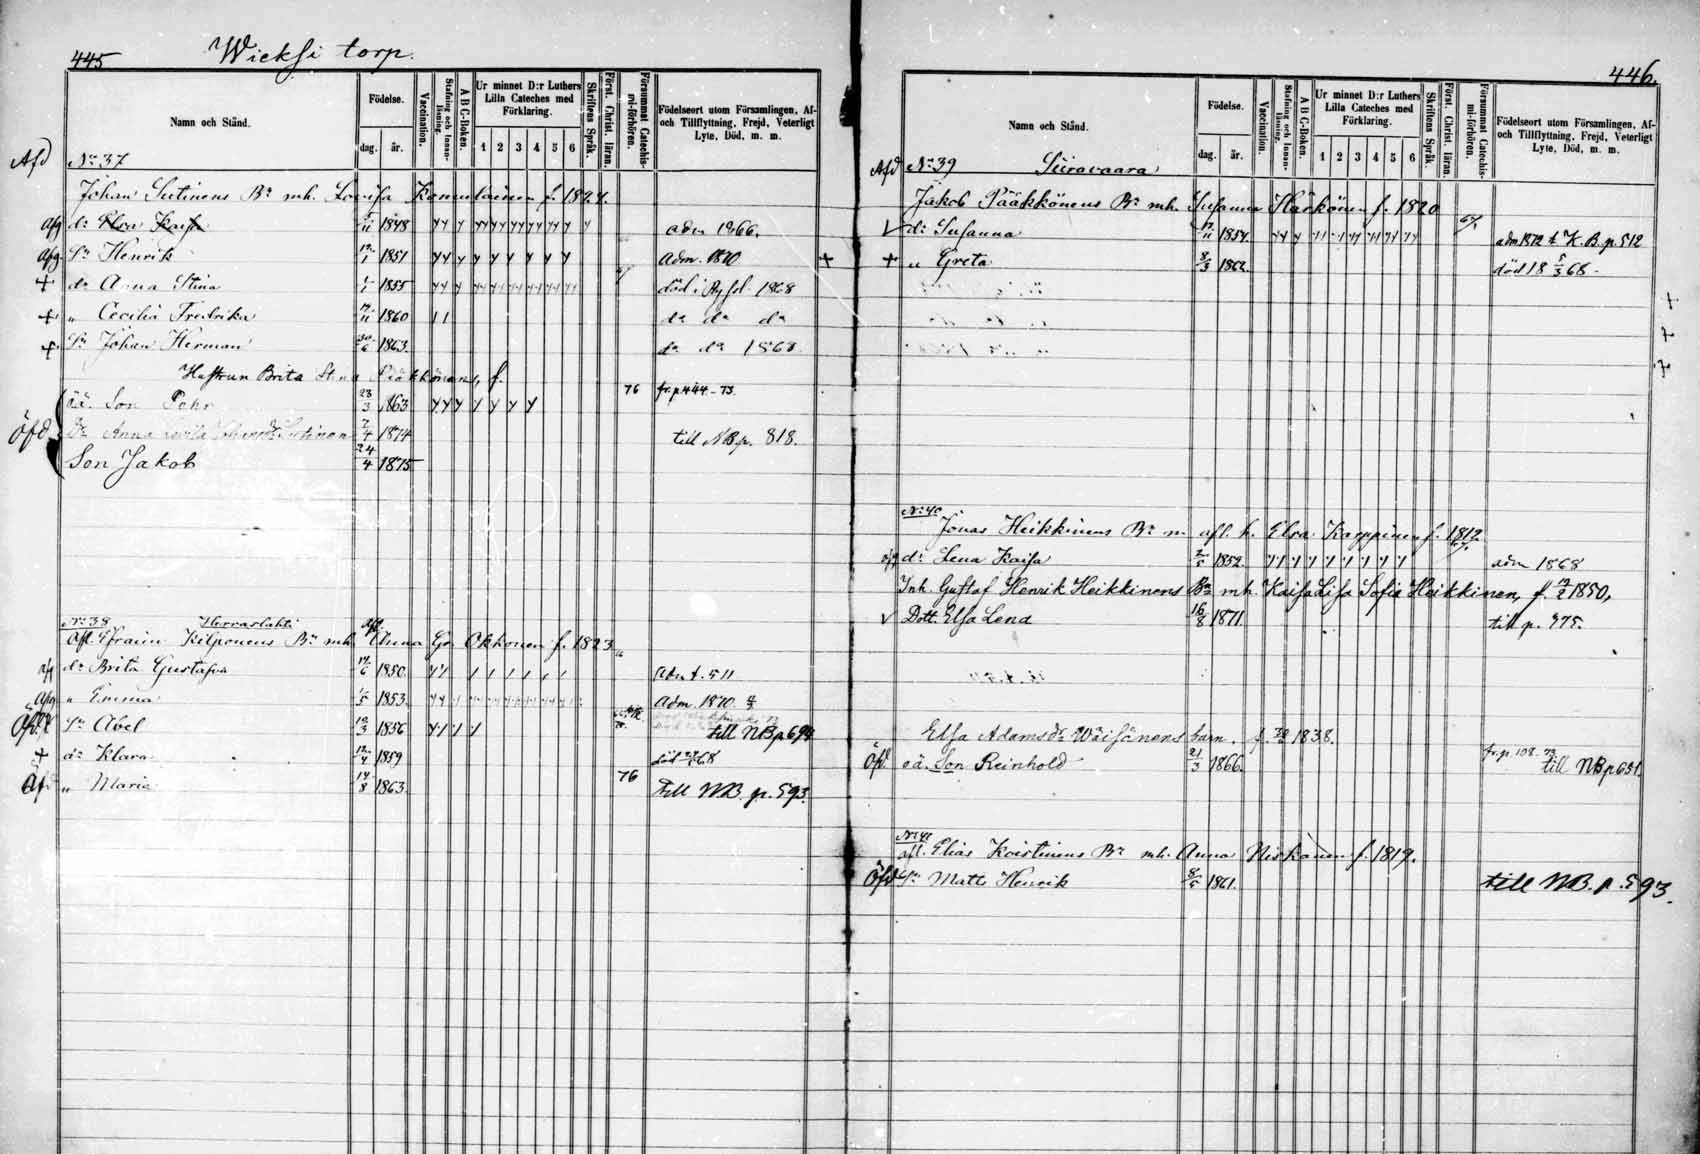 445 Wieksi torp.
Namn och Stånd. Födelse. dag. år. Vaccination. Stafning och Innanläsning. A B C-Boken. Ur minnet D:r Luthers Lilla Cateches med Förklaring. 1 2 3 4 5 6 Skriftens Språk. Först. Christ. läran. Försummat Catechismi-förhören. Födelseort utom Församlingen, Af- och Tillflyttning, Frejd, Veterligt Lyte, Död, m. m.
Afd No 37
Johan Sutinens Bn mh. Lovisa Komulainen f. 1824.
afg dr Elsa Kaisa 11 1848 adm 1866.
afg. Sn Henrik 1851 Adm. 1870
+ dr Anna Stina 1855 död i Ryssl. 1868
+ " Cecilia Fredrika 11 1860 do do do
+ Sn Johan Herman 30/6 1863. do do 1868.
Hustrun Brita Stina Pääkkönens, f.
oä. Son Pehr 23/3 1863 76 fr. p 444 - 73.
Öfd Dr Anna Sutinen 7/4 1874 till NB p. 818.
Son Jakob 24/4 1875
No 38 Herraslahti
Afl. Efraim Kilponens Bn mh. afl. Anna Gr. Okkonen f. 1823
afg dr Brita Gustafva 17/6 1850. Adm t. 511
afg " Emma 1/5 1853. Adm. 1870.
Öfd Sn Abel 12/3 1856 till NB p 694
+ dr Klara 12/4 1859 död 68
Afd " Maria 14/8 1863. 76 Till NB. p. 593.
446.
Namn och Stånd. Födelse. dag. år. Vaccination. Stafning och Innanläsning. A B C-Boken. Ur minnet D:r Luthers Lilla Cateches med Förklaring. 1 2 3 4 5 6 Skriftens Språk. Först. Christ. läran. Försummat Catechismi-förhören. Födelseort utom Församlingen, Af- och Tillflyttning, Frejd, Veterligt Lyte, Död, m. m.
Afd No 39 Siiravaara
Jakob Pääkkönens Bn mh. Susanna Härkönen f. 1820
dr Susanna 17/11 1854. adm 1872 t K. B. p. 512
+ + " Greta 8/3 1862. död 18 5/3 68.
No 40
Jonas Heikkinens Bn m. afl. h. Elsa Karppinen f. 1812.
afg dr Lena Kaisa 2/5 1852. adm 1868
Inh. Gustaf Henrik Heikkinens Bn mh. Kaisa Lisa Sofia Heikkinen, f. 1850,
Dott. Elsa Lena 16/8 1871. till p. 975.
Elsa Adamsdr Wäisänens barn. f. 1838.
Öfd oä. Son Reinhold 21/3 1866. fr. p. 108. 73 till NB p 651.
No 41
afl. Elias Koistinens Bn mh. Anna Niskanen f. 1819.
Öfd Sn Matts Henrik 8/5 1861. till NB. p. 593.